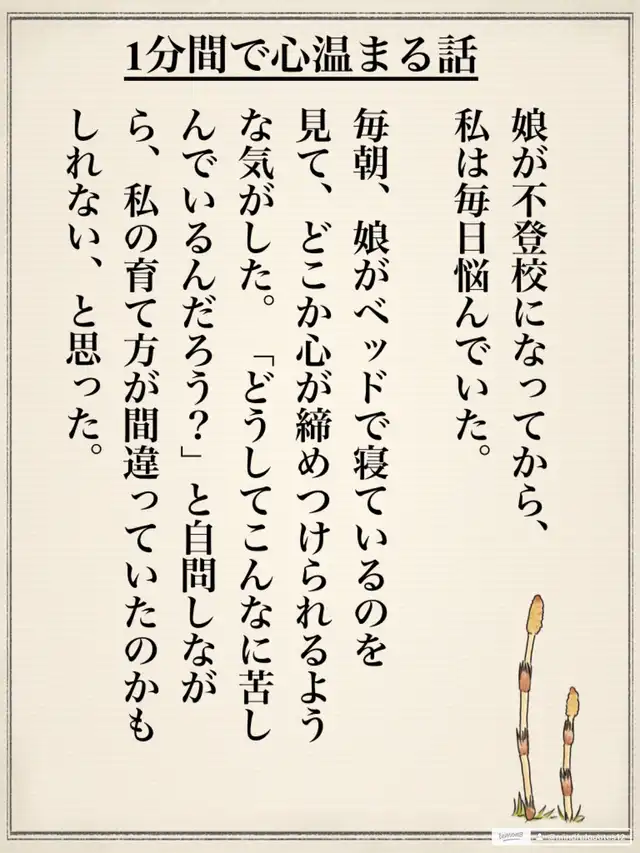 1分間で心温まる話
娘が不登校になってから、
私は毎日悩んでいた。
毎朝、娘がベッドで寝ているのを
見て、どこか心が締めつけられるよう
な気がした。「どうしてこんなに苦し
んでいるんだろう？」と自問しなが
ら、私の育て方が間違っていたのかも
しれない、と思った。